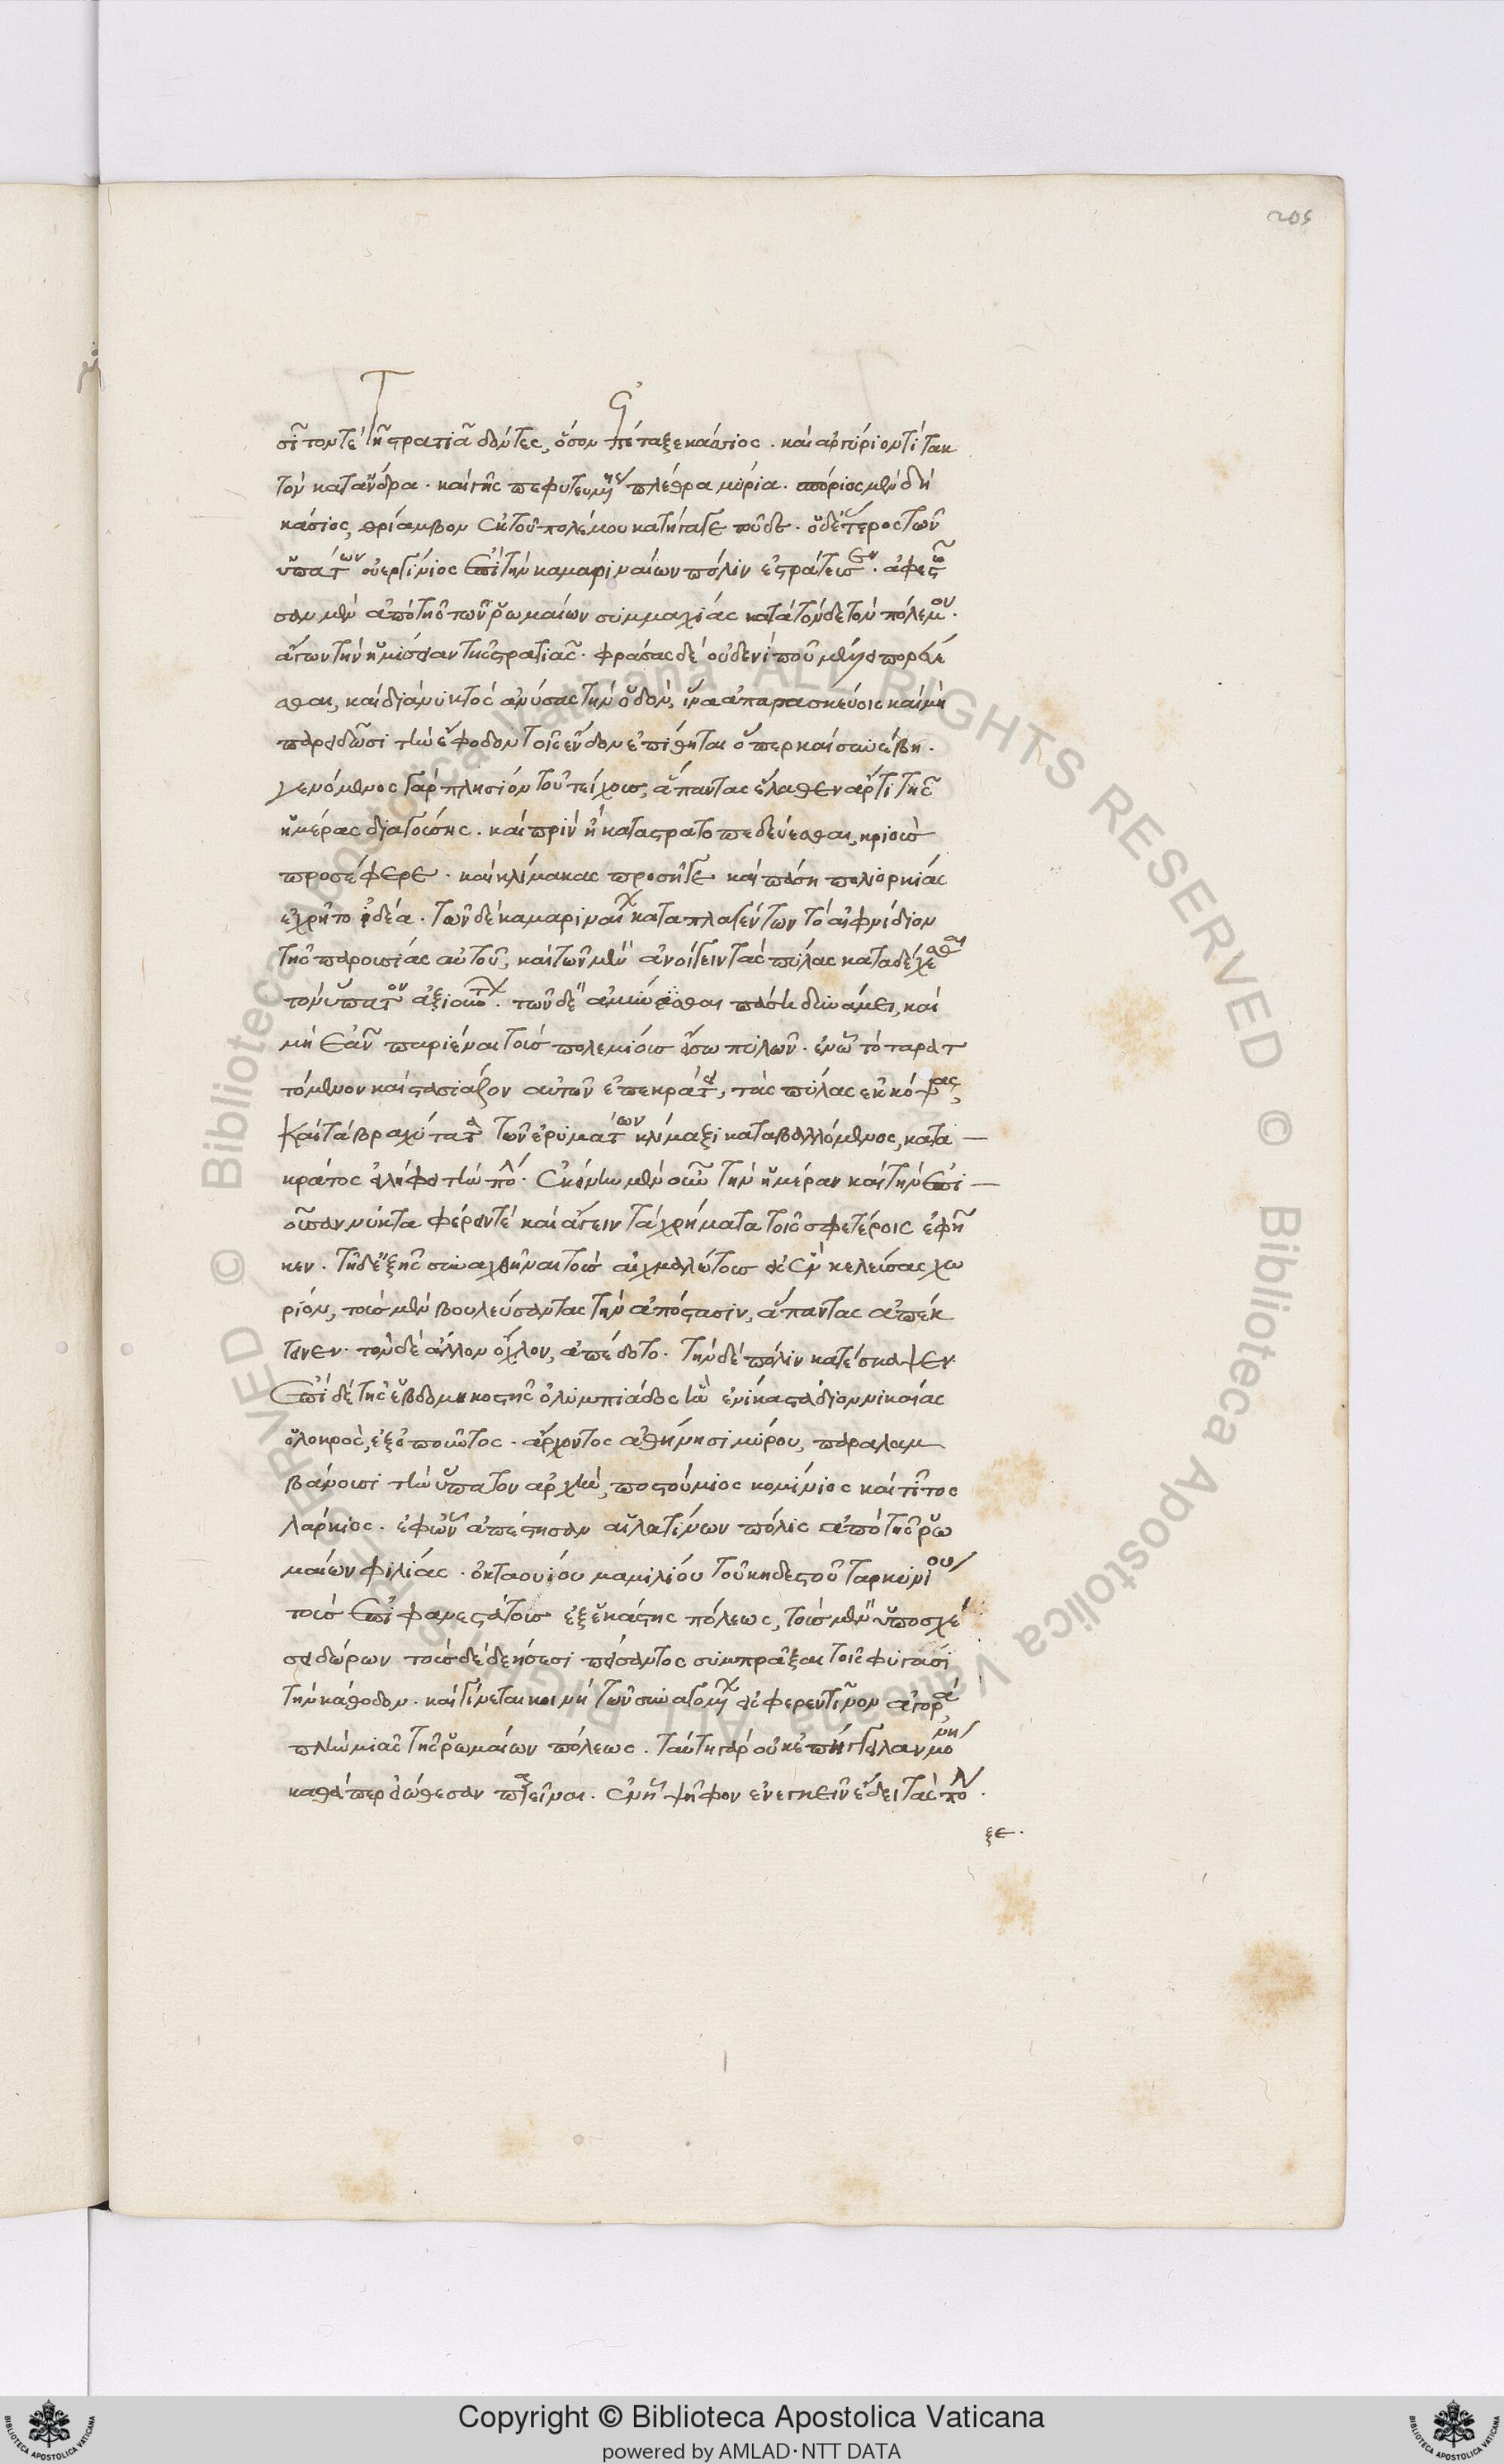 205
σῖτόν τε τῆ στρατιᾶ δόντες, ὅσον ἔταξε κάσσιος. καὶ ἀργύριόν τι τακ
τὸν κατ' ἄνδρα. καὶ γῆς πεφυτευμένης πλέθρα μύρια. σπόριος μὲν δὴ
κάσιος, θρίαμβον ἐκ τοῦ πολέμου κατήγαγε τοῦδε. ὁ δ' ἕτερος τῶν
ὑπάτων οὐεργίνιος ἐπὶ τὴν καμαριναίων πόλιν ἐστράτευσεν. ἀφεστῶ
σαν μὲν ἀπὸ τῆς τῶν ῥωμαίων συμμαχίας κατὰ τόνδε τὸν πόλεμον.
ἄγων τὴν ἡμίσειαν τῆς στρατιᾶς. φράσας δὲ οὐδενὶ ποῦ μέλλει πορεύε
σθαι, καὶ διὰ νυκτὸς ἀνύσας τὴν ὁδόν, ἵνα ἀπαρασκεύοις καὶ μὴ
προειδῶσι τὴν ἔφοδον τοῖς ἔνδον ἐπίθηται ὅπερ καὶ συνέβη.
γενόμενος γὰρ πλησίον τοῦ τείχους, ἅπαντας ἔλαθεν ἄρτι τῆς
ἡμέρας διαγούσης. καὶ πρὶν ἢ καταστρατοπεδεύεσθαι, κριοὺς
προσέφερε. καὶ κλίμακας προσῆγε καὶ πάση πολιορκίας
ἐχρῆτο ἰδέα. τῶν δὲ καμαριναίων καταπλαγέντων τὸ αἰφνίδιον
τῆς παρουσίας αὐτοῦ, καὶ τῶν μὲν ἀνοίγειν τὰς πύλας καταδέχεσθαι
τὸν ὕπατον ἀξιούντων. τῶν δὲ ἀμύνεσθαι πάση δυνάμει, καὶ
μὴ ἐᾶν παριέναι τοὺς πολεμίους εἴσω πυλῶν. ἐν ὧ τὸ ταρατ
τόμενον καὶ στασιάζον αὐτῶν ἐπεκράτει, τὰς πύλας ἐκκόψας,
καὶ τὰ βραχύτατα τῶν ἐρυμάτων κλίμαξι καταβαλλόμενος, κατὰ
κράτος εἰλήφει τὴν πόλιν. ἐκείνην μὲν οὖν τὴν ἡμέραν καὶ τὴν ἐπι
οῦσαν νύκτα φέρειν τὲ καὶ ἄγειν τὰ χρήματα τοῖς σφετέροις ἐφῆ
κεν. τῆ δ' ἑξῆς συναχθῆναι τοὺς αἰχμαλώτους εἰς ἓν κελεύσας χω
ρίον, τοὺς μὲν βουλεύσαντας τὴν ἀπόστασιν, ἅπαντας ἀπέκ
τεινεν. τὸν δὲ ἄλλον ὄχλον, ἀπέδοτο. τὴν δὲ πόλιν κατέσκαψεν.
Ἐπὶ δὲ τῆς ἑβδομηκοστῆς ὀλυμπιάδος ἣν ἐνίκα στάδιον νικαίας
λοκρὸς, ἐξ ὀποῦντος. ἄρχοντος ἀθήνησι μύρου, παραλαμ
βάνουσι τὴν ὕπατον ἀρχὴν, ποστούμιος κομίνιος καὶ τίτος
λάρκιος. ἐφ' ὧν ἀπέστησαν αἱ λατίνων πόλις ἀπὸ τῆς ῥω
μαίων φιλίας. ὀκταουίου μαμιλίου τοῦ κηδεστοῦ ταρκυνίου
τοὺς ἐπιφανεστάτους ἐξ ἑκάστης πόλεως, τοὺς μὲν ὑποσχέ
σει δώρων τοὺς δὲ δεήσεσι πείσαντος συμπρᾶξαι τοῖς φυγάσι
τὴν κάθοδον. καὶ γίνεται κοινὴ τῶν συναγομένων εἰς φερεντῖνον ἀγορὰ
πλὴν μιᾶς τῆς ῥωμαίων πόλεως. ταύτη γὰρ οὐκ ἐπήγγειλαν μόνη
καθάπερ εἰώθεσαν παρεῖναι. ἐν ἧ ψῆφον ἐνεγκεῖν ἔδει τὰς πόλ
ξε.